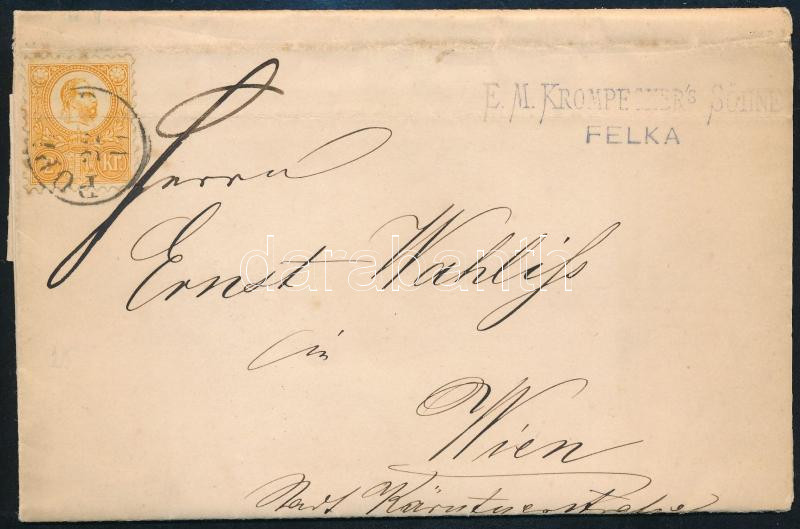 E. M. KROMPECHER'S SÖHNE
FELKA
2 Kr.
Herrn
Ernst Wahliſs
in
Wien
Stadt Kärntnerstraße
darabanth